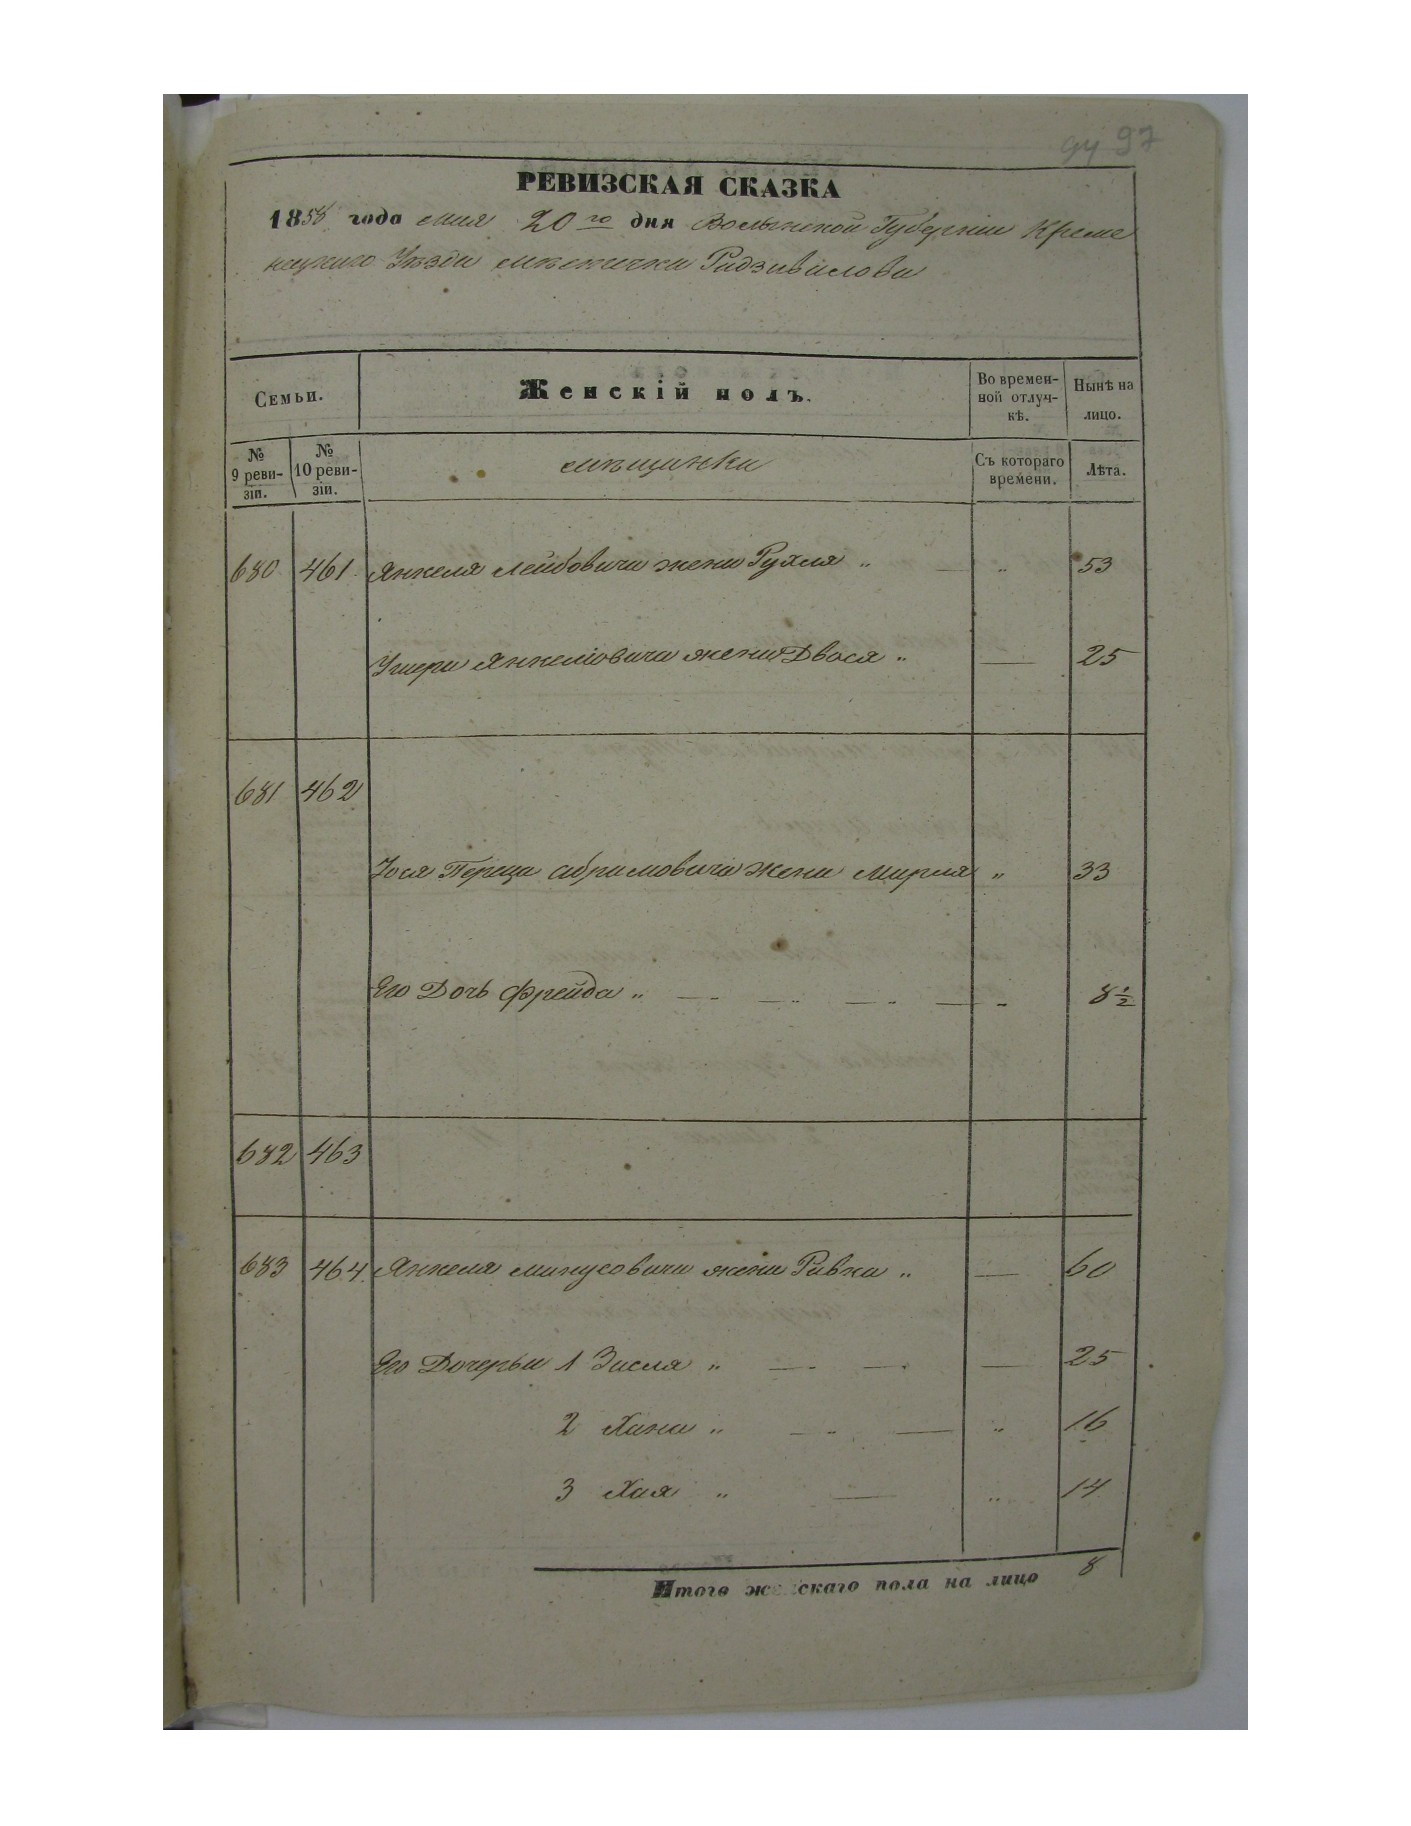 94 97
РЕВИЗСКАЯ СКАЗКА
1858 года мая 20го дня Волынской Губерніи Креме
нецкаго Уѣзда мѣстечка Радзивилова
Семьи.
Женскій полъ.
Во времен-
ной отлуч-
кѣ.
Нынѣ на
лицо.
№
9 реви-
зіи.
№
10 реви-
зіи.
мѣщанки
Съ котораго
времени.
Лѣта.
680 461 Янкеля Лейбовича жена Рухля „ — „ 53
Ушера Янкелiовича жена Двося „ — 25
681 462
Іося Переца Абрамовича жена Мирля „ 33
Его Дочь Фрейда „ — „ — „ — „ — „ 8 1/2
682 463
683 464 Янкеля жена Ривка „ — 60
Его Дочерьи 1 Зисля „ — „ — „ — 25
2 Хана „ — „ — „ 16
3 Хая „ — „ 14
Итого женскаго пола на лицо 8